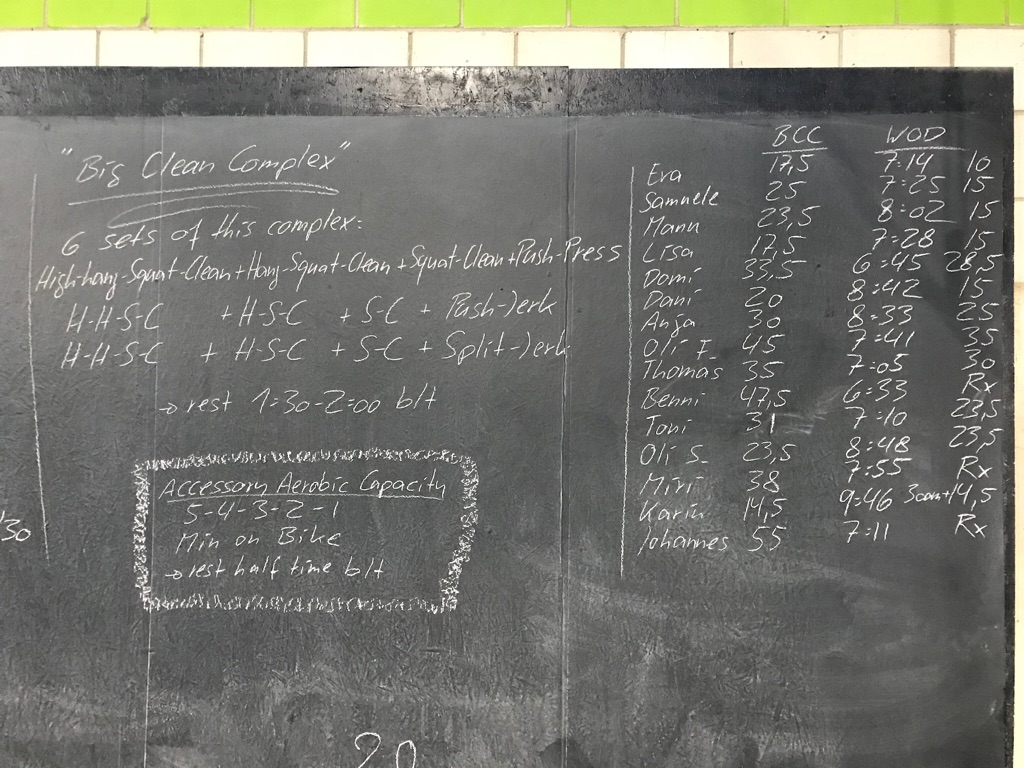 "Big Clean Complex"
6 sets of this complex:
High-hang-Squat-Clean+Hang-Squat-Clean+Squat-Clean+Push-Press
H-H-S-C + H-S-C + S-C + Push-Jerk
H-H-S-C + H-S-C + S-C + Split-Jerk
→ rest 1:30-2:00 b/t
Accessory Aerobic Capacity
5-4-3-2-1
Min on Bike
→ rest half time b/t
BCC WOD
Eva 17,5 7:14 10
Samuele 25 7:25 15
Manu 23,5 8:02 15
Lisa 17,5 7:28 15
Domi 33,5 6:45 28,5
Dani 20 8:42 15
Anja 30 8:33 25
Oli F. 45 7:41 35
Thomas 35 7:05 30
Benni 47,5 6:33 Rx
Toni 31 7:10 23,5
Oli S. 23,5 8:48 23,5
Miri 38 7:55 Rx
Karin 14,5 9:46 30cm+14,5
Johannes 55 7:11 Rx